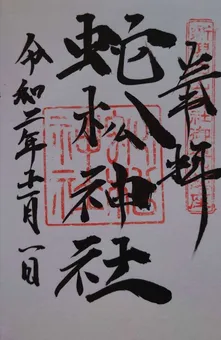 奉拝
蛇松神社
令和二年十一月一日